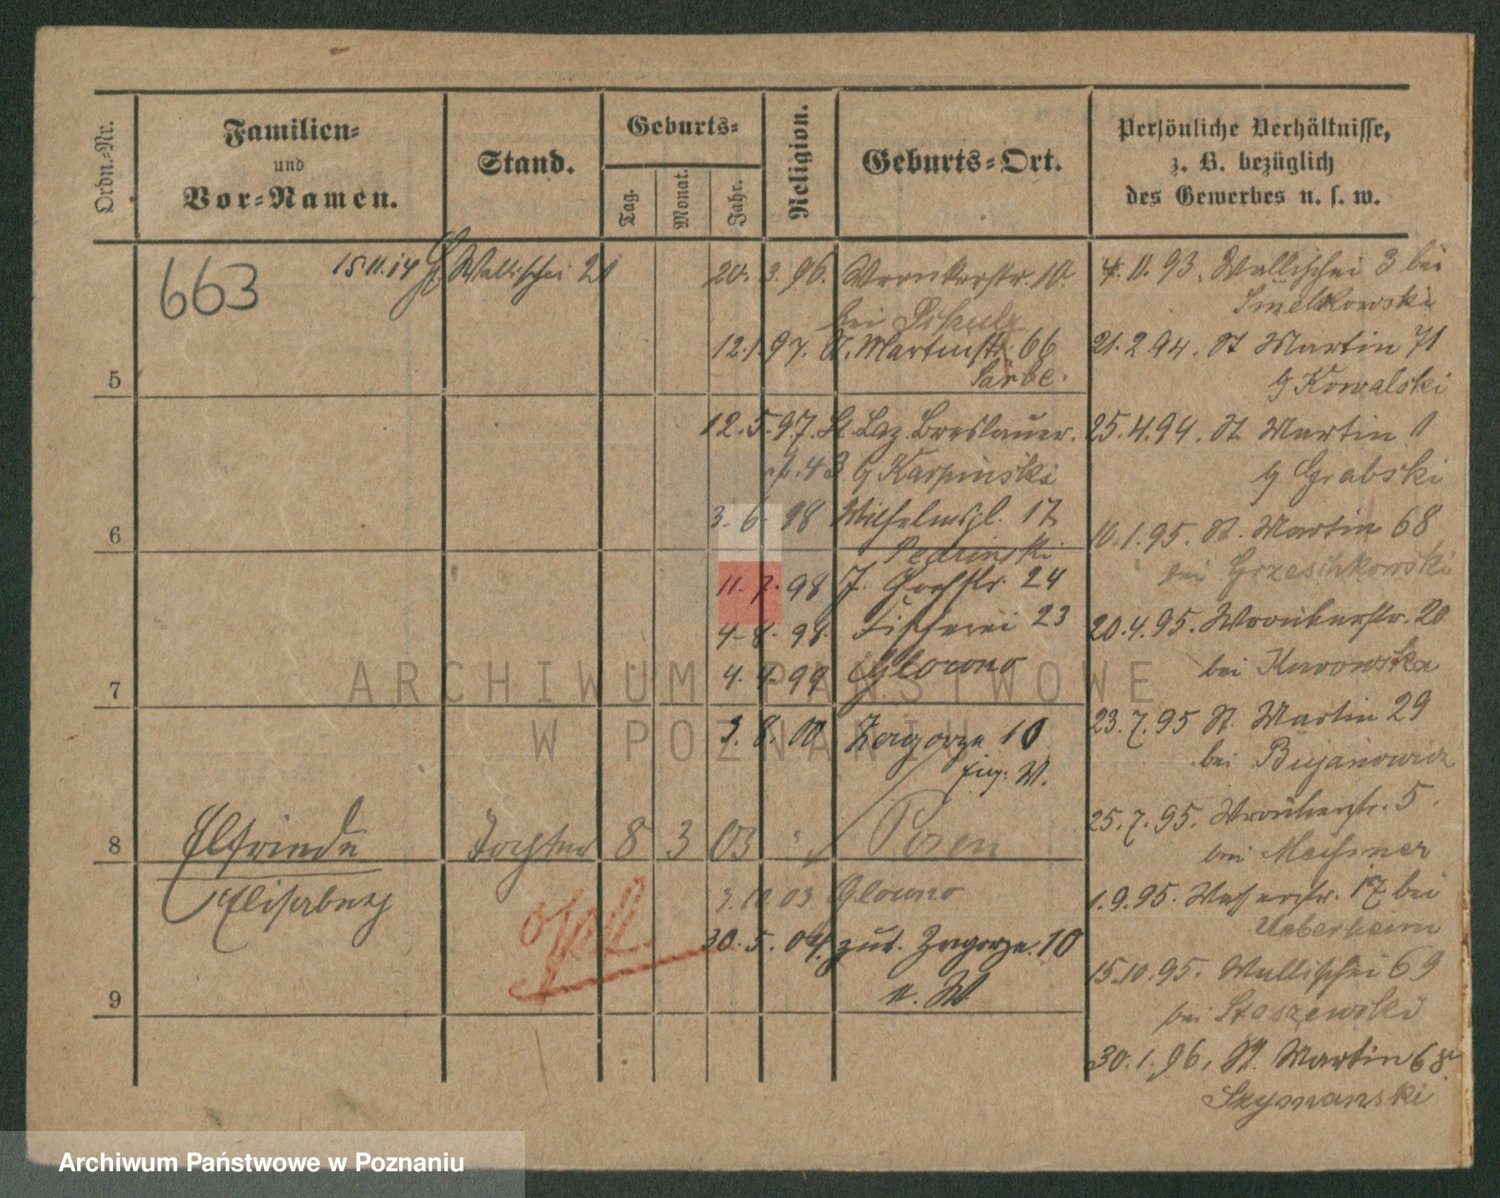 Ordn.-Nr.
Familien-
und
Vor-Namen.
Stand.
Geburts-
Tag.
Monat.
Jahr.
Religion.
Geburts-Ort.
Persönliche Verhältnisse,
z. B. bezüglich
des Gewerbes u. s. w.
663
15.11.14 Wallischei 21
20. 3. 96. Wronkerstr. 10.
bei Schulz
12.1.97. St. Martinstr. 66
Sarbe.
5
12.5.97. St. Laz. Breslauer.
43 b/ Karpinski
3-6-98 Wilhelmspl. 17
6
11-7-98 24
4-8-98. Fischerei 23
4.4.99 Glowno
7
3.8.00 Zagorze 10
8
Elfriede
Tochter 8 3 03 " Posen
Elisabeth
3.10.03 Glowno
30.5.04. zur. Zagorze. 10
n. W.
9
4.11.93. Wallischei 3 bei
Smelkowski
21.2.94. St Martin 71
b/ Kowalski
25.4.94. St. Martin 1
b/ Grabski
10.1.95. St. Martin 68
bei Grzeschkowski
20.4.95. Wronkerstr. 20
bei
23.7.95 St. Martin 29
bei Bujanowicz
25.7.95. Wronkerstr. 5.
bei Meissner
1.9.95. Wasserstr. 17 bei
Ueberheim
15.10.95. Wallischei 69
bei Staszewski
30.1.96. St. Martin 68
Szymanski
ARCHIWUM PAŃSTWOWE
W POZNANIU
Archiwum Państwowe w Poznaniu